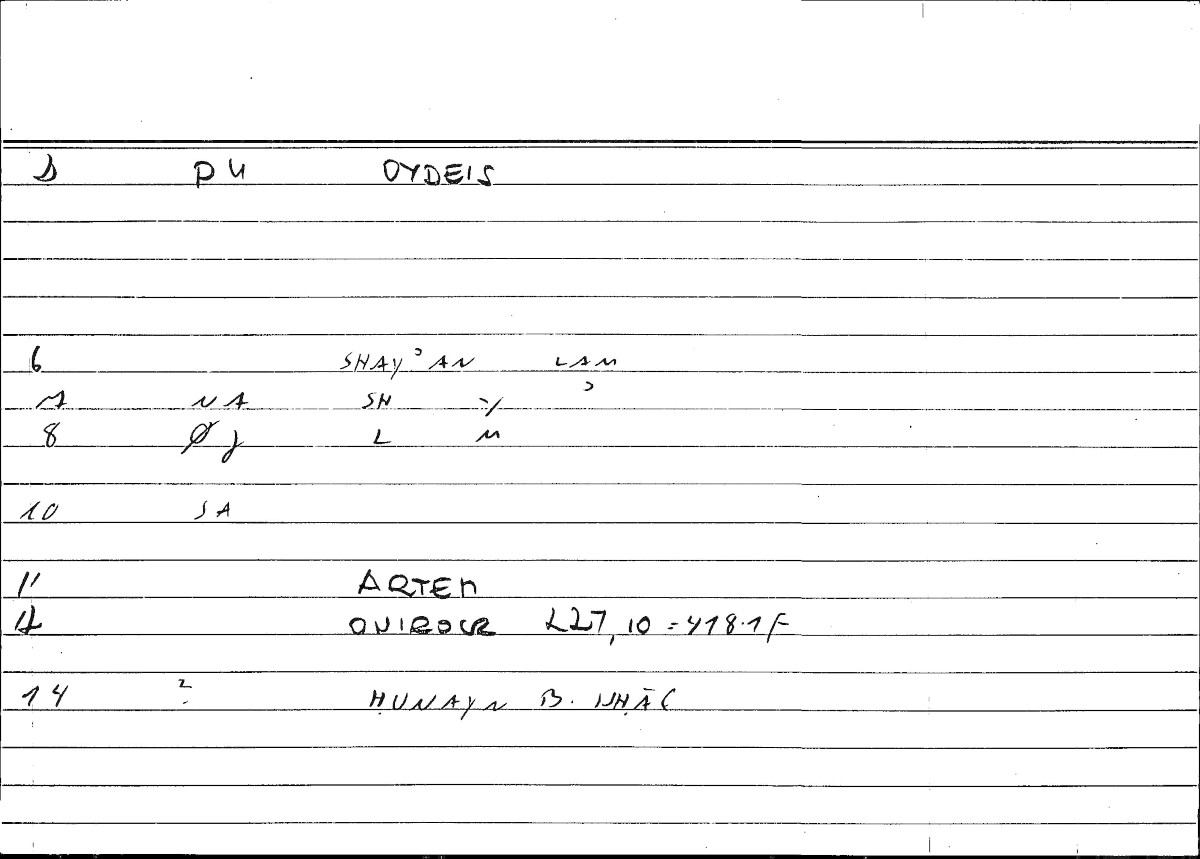 1 PU OYDEIS
6 SHAYʾAN LAM
7 NA SH y ʾ
8 Øj L M
10 SA
11 ARTEM
12 ONIROCR 227,10 = 418.1F
14 ? ḤUNAYN B. ISḤĀC